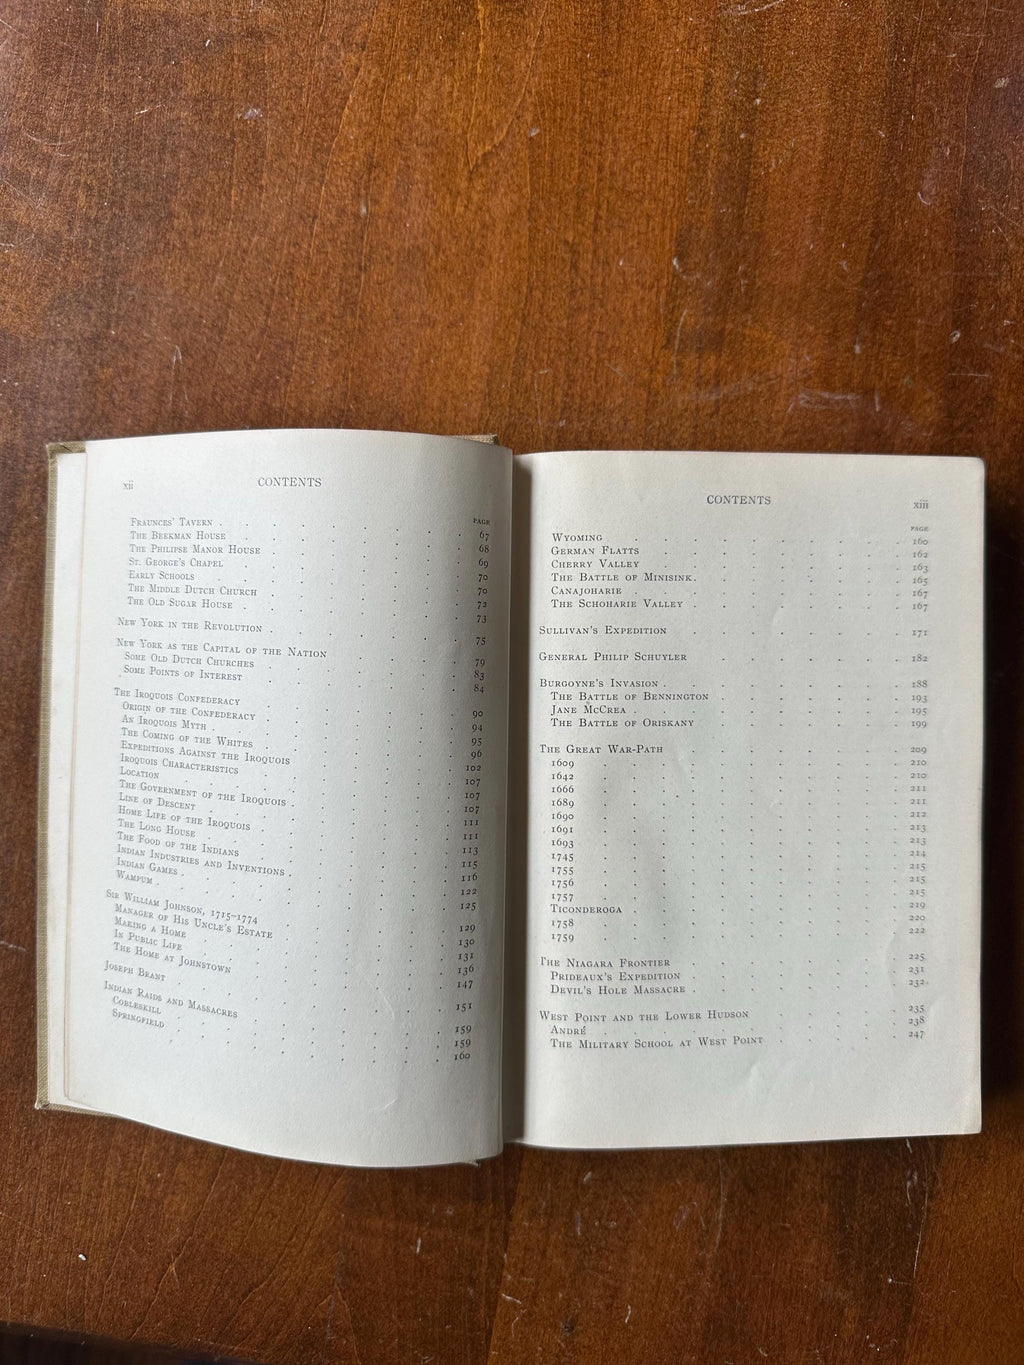 xii CONTENTS
PAGE
Fraunces' Tavern . . . . . . . . 67
The Beekman House . . . . . . . . 68
The Philipse Manor House . . . . . . . 69
St. George's Chapel . . . . . . . . 70
Early Schools . . . . . . . . 70
The Middle Dutch Church . . . . . . . 72
The Old Sugar House . . . . . . . . 73
New York in the Revolution . . . . . . . 75
New York as the Capital of the Nation . . . . . 79
Some Old Dutch Churches . . . . . . . 83
Some Points of Interest . . . . . . . 84
The Iroquois Confederacy . . . . . . . 90
Origin of the Confederacy . . . . . . . 94
An Iroquois Myth . . . . . . . . 95
The Coming of the Whites . . . . . . . 96
Expeditions Against the Iroquois . . . . . . 102
Iroquois Characteristics . . . . . . . 107
Location . . . . . . . . . 107
The Government of the Iroquois . . . . . . 107
Line of Descent . . . . . . . . 111
Home Life of the Iroquois . . . . . . . 111
The Long House . . . . . . . . 113
The Food of the Indians . . . . . . . 115
Indian Industries and Inventions . . . . . . 116
Indian Games . . . . . . . . 122
Wampum . . . . . . . . . 125
Sir William Johnson, 1715–1774 . . . . . . 129
Manager of His Uncle's Estate . . . . . . 130
Making a Home . . . . . . . . 131
In Public Life . . . . . . . . 136
The Home at Johnstown . . . . . . . 147
Joseph Brant . . . . . . . . 151
Indian Raids and Massacres . . . . . . . 159
Cobleskill . . . . . . . . 159
Springfield . . . . . . . . 160
CONTENTS xiii
PAGE
Wyoming . . . . . . . . . 160
German Flatts . . . . . . . . 162
Cherry Valley . . . . . . . . 163
The Battle of Minisink . . . . . . . 165
Canajoharie . . . . . . . . . 167
The Schoharie Valley . . . . . . . 167
Sullivan's Expedition . . . . . . . 171
General Philip Schuyler . . . . . . . 182
Burgoyne's Invasion . . . . . . . . 188
The Battle of Bennington . . . . . . . 193
Jane McCrea . . . . . . . . 195
The Battle of Oriskany . . . . . . . 199
The Great War-Path . . . . . . . . 209
1609 . . . . . . . . . . 210
1642 . . . . . . . . . . 210
1666 . . . . . . . . . . 211
1689 . . . . . . . . . . 211
1690 . . . . . . . . . . 212
1691 . . . . . . . . . . 213
1693 . . . . . . . . . . 213
1745 . . . . . . . . . . 214
1755 . . . . . . . . . . 215
1756 . . . . . . . . . . 215
1757 . . . . . . . . . . 215
Ticonderoga . . . . . . . . . 219
1758 . . . . . . . . . . 220
1759 . . . . . . . . . . 222
The Niagara Frontier . . . . . . . 225
Prideaux's Expedition . . . . . . . 231
Devil's Hole Massacre . . . . . . . 232
West Point and the Lower Hudson . . . . . 235
André . . . . . . . . . . 238
The Military School at West Point . . . . . 247